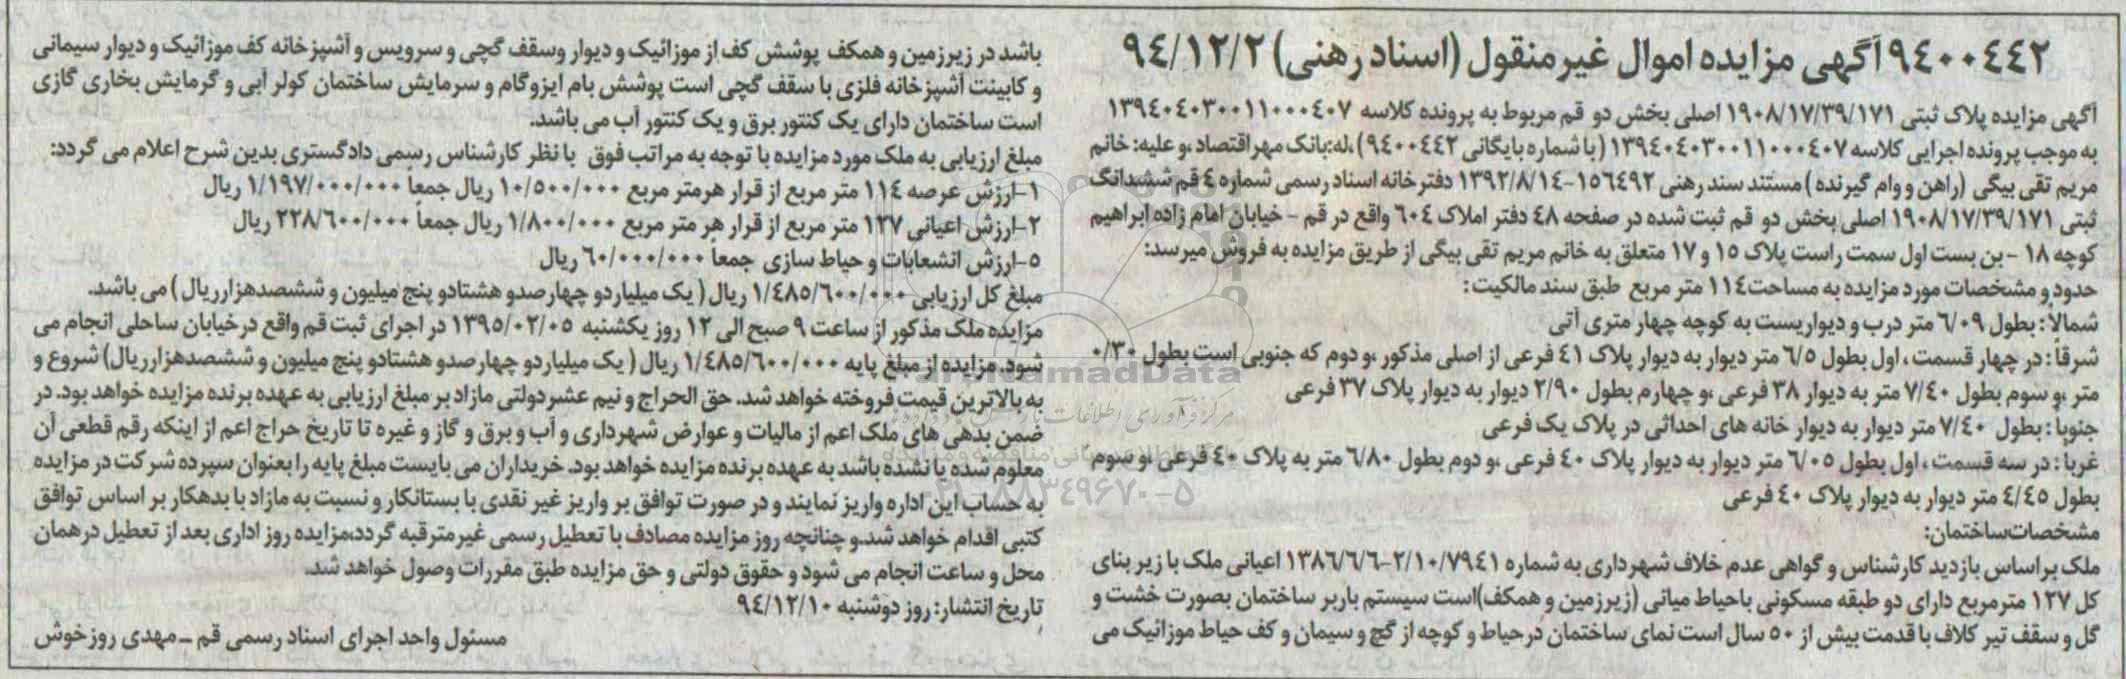 ۹۴۰۰۴۴۲ آگهی مزایده اموال غیرمنقول (اسناد رهنی) ۹۴/۱۲/۲
آگهی مزایده پلاک ثبتی ۱۹۰۸/۱۷/۳۹/۱۷۱ اصلی بخش دو قم مربوط به پرونده کلاسه ۱۳۹۴۰۴۰۳۰۰۱۱۰۰۰۴۰۷
به موجب پرونده اجرایی کلاسه ۱۳۹۴۰۴۰۳۰۰۱۱۰۰۰۴۰۷ (با شماره بایگانی ۹۴۰۰۴۴۲) ،له:بانک مهر اقتصاد ،و علیه: خانم
مریم تقی بیگی (راهن و وام گیرنده ) مستند سند رهنی ۱۵۶۴۹۲-۱۳۹۲/۸/۱۴ دفترخانه اسناد رسمی شماره ۴ قم ششدانگ
ثبتی ۱۹۰۸/۱۷/۳۹/۱۷۱ اصلی بخش دو قم ثبت شده در صفحه ۴۸ دفتر املاک ۶۰۴ واقع در قم - خیابان امام زاده ابراهیم
کوچه ۱۸ - بن بست اول سمت راست پلاک ۱۵ و ۱۷ متعلق به خانم مریم تقی بیگی از طریق مزایده به فروش میرسد:
حدود و مشخصات مورد مزایده به مساحت ۱۱۴ متر مربع طبق سند مالکیت :
شمالاً : بطول ۶/۰۹ متر درب و دیواریست به کوچه چهار متری آتی
شرقاً : در چهار قسمت ، اول بطول ۶/۵ متر دیوار به دیوار پلاک ۴۱ فرعی از اصلی مذکور ،و دوم که جنوبی است بطول ۰/۳۰
متر ،و سوم بطول ۷/۴۰ متر به دیوار ۳۸ فرعی ،و چهارم بطول ۲/۹۰ دیوار به دیوار پلاک ۳۷ فرعی
جنوباً : بطول ۷/۴۰ متر دیوار به دیوار خانه های احداثی در پلاک یک فرعی
غرباً : در سه قسمت ، اول بطول ۶/۰۵ متر دیوار به دیوار پلاک ۴۰ فرعی ،و دوم بطول ۶/۸۰ متر به پلاک ۴۰ فرعی ،و سوم
بطول ۴/۴۵ متر دیوار به دیوار پلاک ۴۰ فرعی
مشخصات‌ساختمان:
ملک براساس بازدید کارشناس و گواهی عدم خلاف شهرداری به شماره ۲/۱۰/۷۹۴۱-۱۳۸۶/۶/۶ اعیانی ملک با زیر بنای
کل ۱۲۷ مترمربع دارای دو طبقه مسکونی باحیاط میانی (زیرزمین و همکف)است سیستم باربر ساختمان بصورت خشت و
گل و سقف تیر کلاف با قدمت بیش از ۵۰ سال است نمای ساختمان درحیاط و کوچه از گچ و سیمان و کف حیاط موزائیک می
باشد در زیرزمین و همکف پوشش کف از موزائیک و دیوار وسقف گچی و سرویس و آشپزخانه کف موزائیک و دیوار سیمانی
و کابینت آشپزخانه فلزی با سقف گچی است پوشش بام ایزوگام و سرمایش ساختمان کولر آبی و گرمایش بخاری گازی
است ساختمان دارای یک کنتور برق و یک کنتور آب می باشد.
مبلغ ارزیابی به ملک مورد مزایده با توجه به مراتب فوق با نظر کارشناس رسمی دادگستری بدین شرح اعلام می گردد:
۱-ارزش عرصه ۱۱۴ متر مربع از قرار هرمتر مربع ۱۰/۵۰۰/۰۰۰ ریال جمعاً ۱/۱۹۷/۰۰۰/۰۰۰ ریال
۲-ارزش اعیانی ۱۲۷ متر مربع از قرار هر متر مربع ۱/۸۰۰/۰۰۰ ریال جمعاً ۲۲۸/۶۰۰/۰۰۰ ریال
۵-ارزش انشعابات و حیاط سازی جمعاً ۶۰/۰۰۰/۰۰۰ ریال
مبلغ کل ارزیابی ۱/۴۸۵/۶۰۰/۰۰۰ ریال ( یک میلیاردو چهارصدو هشتادو پنج میلیون و ششصدهزارریال ) می باشد.
مزایده ملک مذکور از ساعت ۹ صبح الی ۱۲ روز یکشنبه ۱۳۹۵/۰۲/۰۵ در اجرای ثبت قم واقع درخیابان ساحلی انجام می
شود. مزایده از مبلغ پایه ۱/۴۸۵/۶۰۰/۰۰۰ ریال ( یک میلیاردو چهارصدو هشتادو پنج میلیون و ششصدهزارریال) شروع و
به بالاترین قیمت فروخته خواهد شد. حق الحراج و نیم عشردولتی مازاد بر مبلغ ارزیابی به عهده برنده مزایده خواهد بود. در
ضمن بدهی های ملک اعم از مالیات و عوارض شهرداری و آب و برق و گاز و غیره تا تاریخ حراج اعم از اینکه رقم قطعی آن
معلوم شده یا نشده باشد به عهده برنده مزایده خواهد بود. خریداران می بایست مبلغ پایه را بعنوان سپرده شرکت در مزایده
به حساب این اداره واریز نمایند و در صورت توافق بر واریز غیر نقدی با بستانکار و نسبت به مازاد با بدهکار بر اساس توافق
کتبی اقدام خواهد شد.و چنانچه روز مزایده مصادف با تعطیل رسمی غیرمترقبه گردد،مزایده روز اداری بعد از تعطیل درهمان
محل و ساعت انجام می شود و حقوق دولتی و حق مزایده طبق مقررات وصول خواهد شد.
تاریخ انتشار: روز دوشنبه ۹۴/۱۲/۱۰
مسئول واحد اجرای اسناد رسمی قم ــ مهدی روزخوش